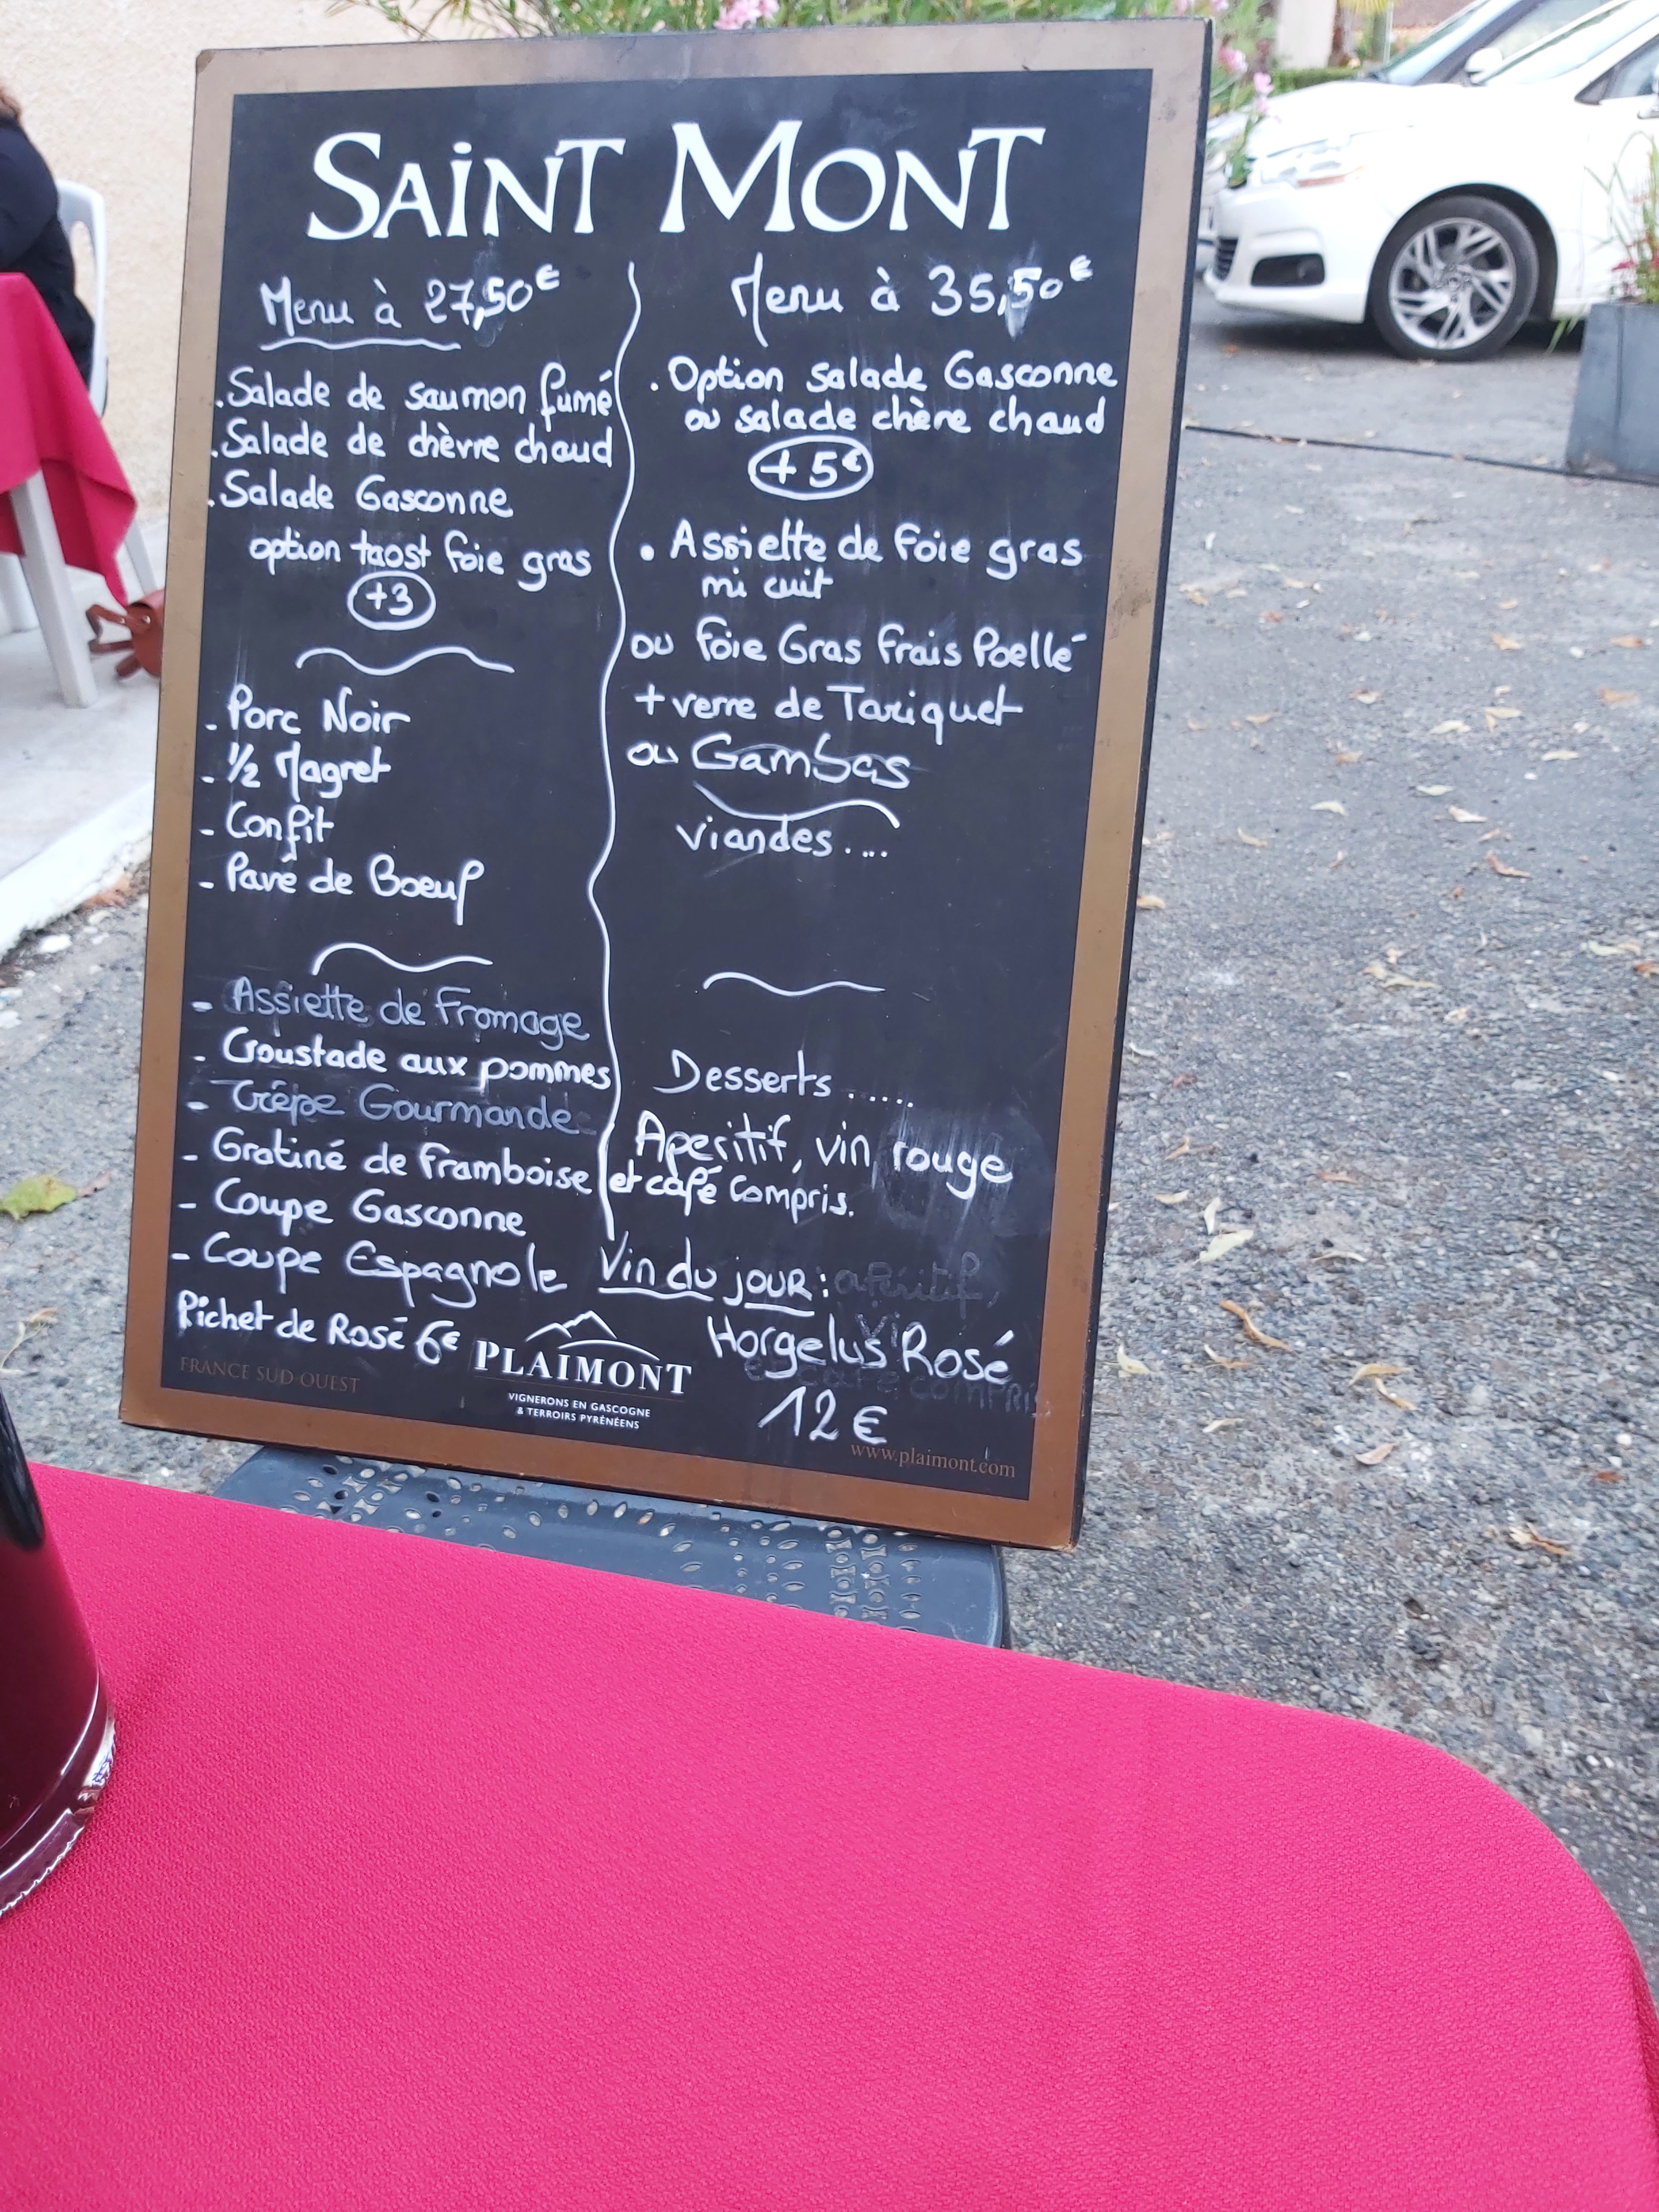 SAINT MONT
Menu à 27,50€
.Salade de saumon fumé
.Salade de chèvre chaud
.Salade Gasconne
option taost foie gras
+3
- Porc Noir
- 1/2 Magret
- Confit
- Pavé de Boeuf
- Assiette de Fromage
- Croustade aux pommes
- Crêpe Gourmande
- Gratiné de framboise
- Coupe Gasconne
- Coupe Espagnole
Pichet de Rosé 6€
Menu à 35,50€
. Option salade Gasconne
ou salade chère chaud
+ 5€
. Assiette de foie gras
mi cuit
ou foie Gras frais Poellé
+ verre de Tariquet
ou Gambas
viandes....
Desserts......
Aperitif, vin rouge
et café Compris.
Vin du jour: apéritif,
vi
Horgelus Rosé
et café compris
12€
FRANCE SUD-OUEST
PLAIMONT
VIGNERONS EN GASCOGNE
& TERROIRS PYRÉNÉENS
www.plaimont.com